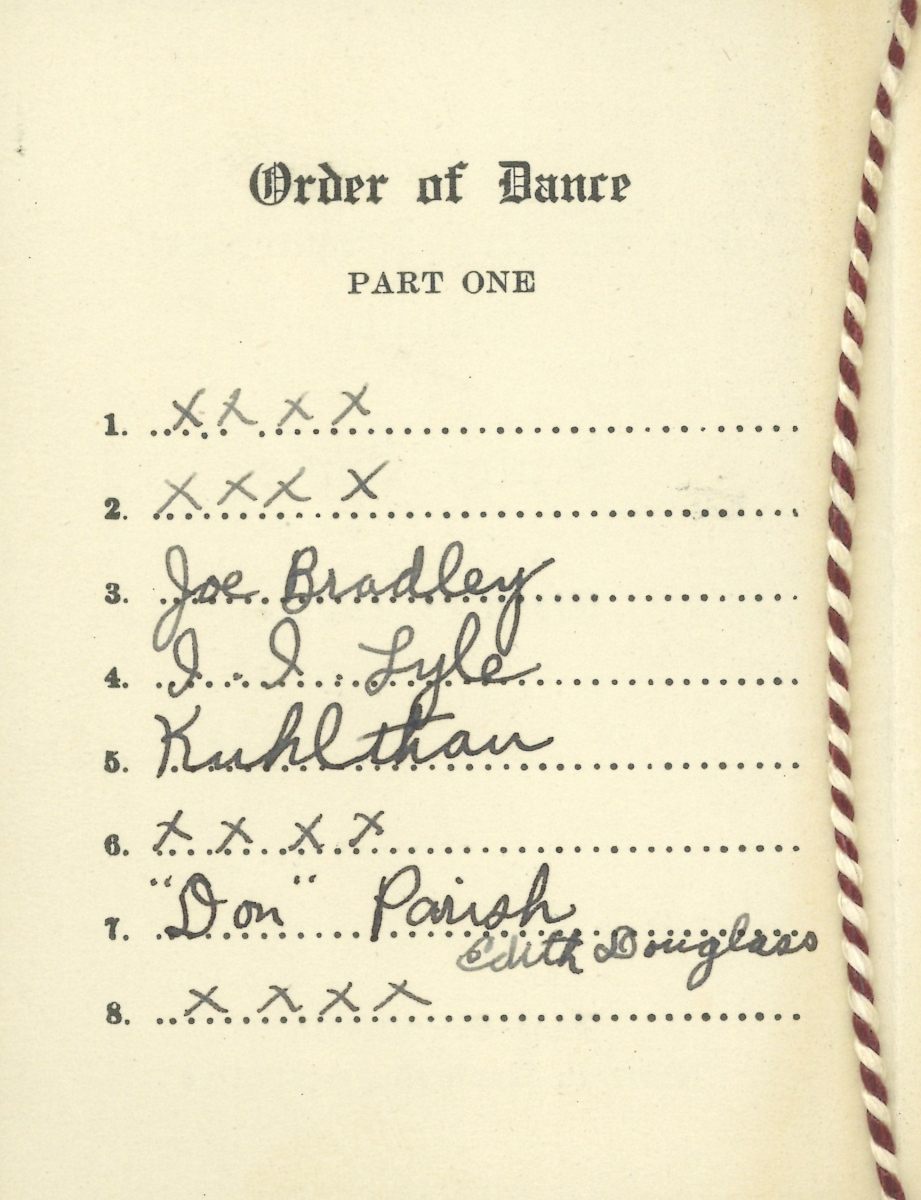 Order of Dance
PART ONE
1. X X X X
2. X X X X
3. Joe Bradley
4. I. I. Lyle
5. Kuhlthau
6. X X X X
7. "Don" Parish
Edith Douglass
8. X X X X